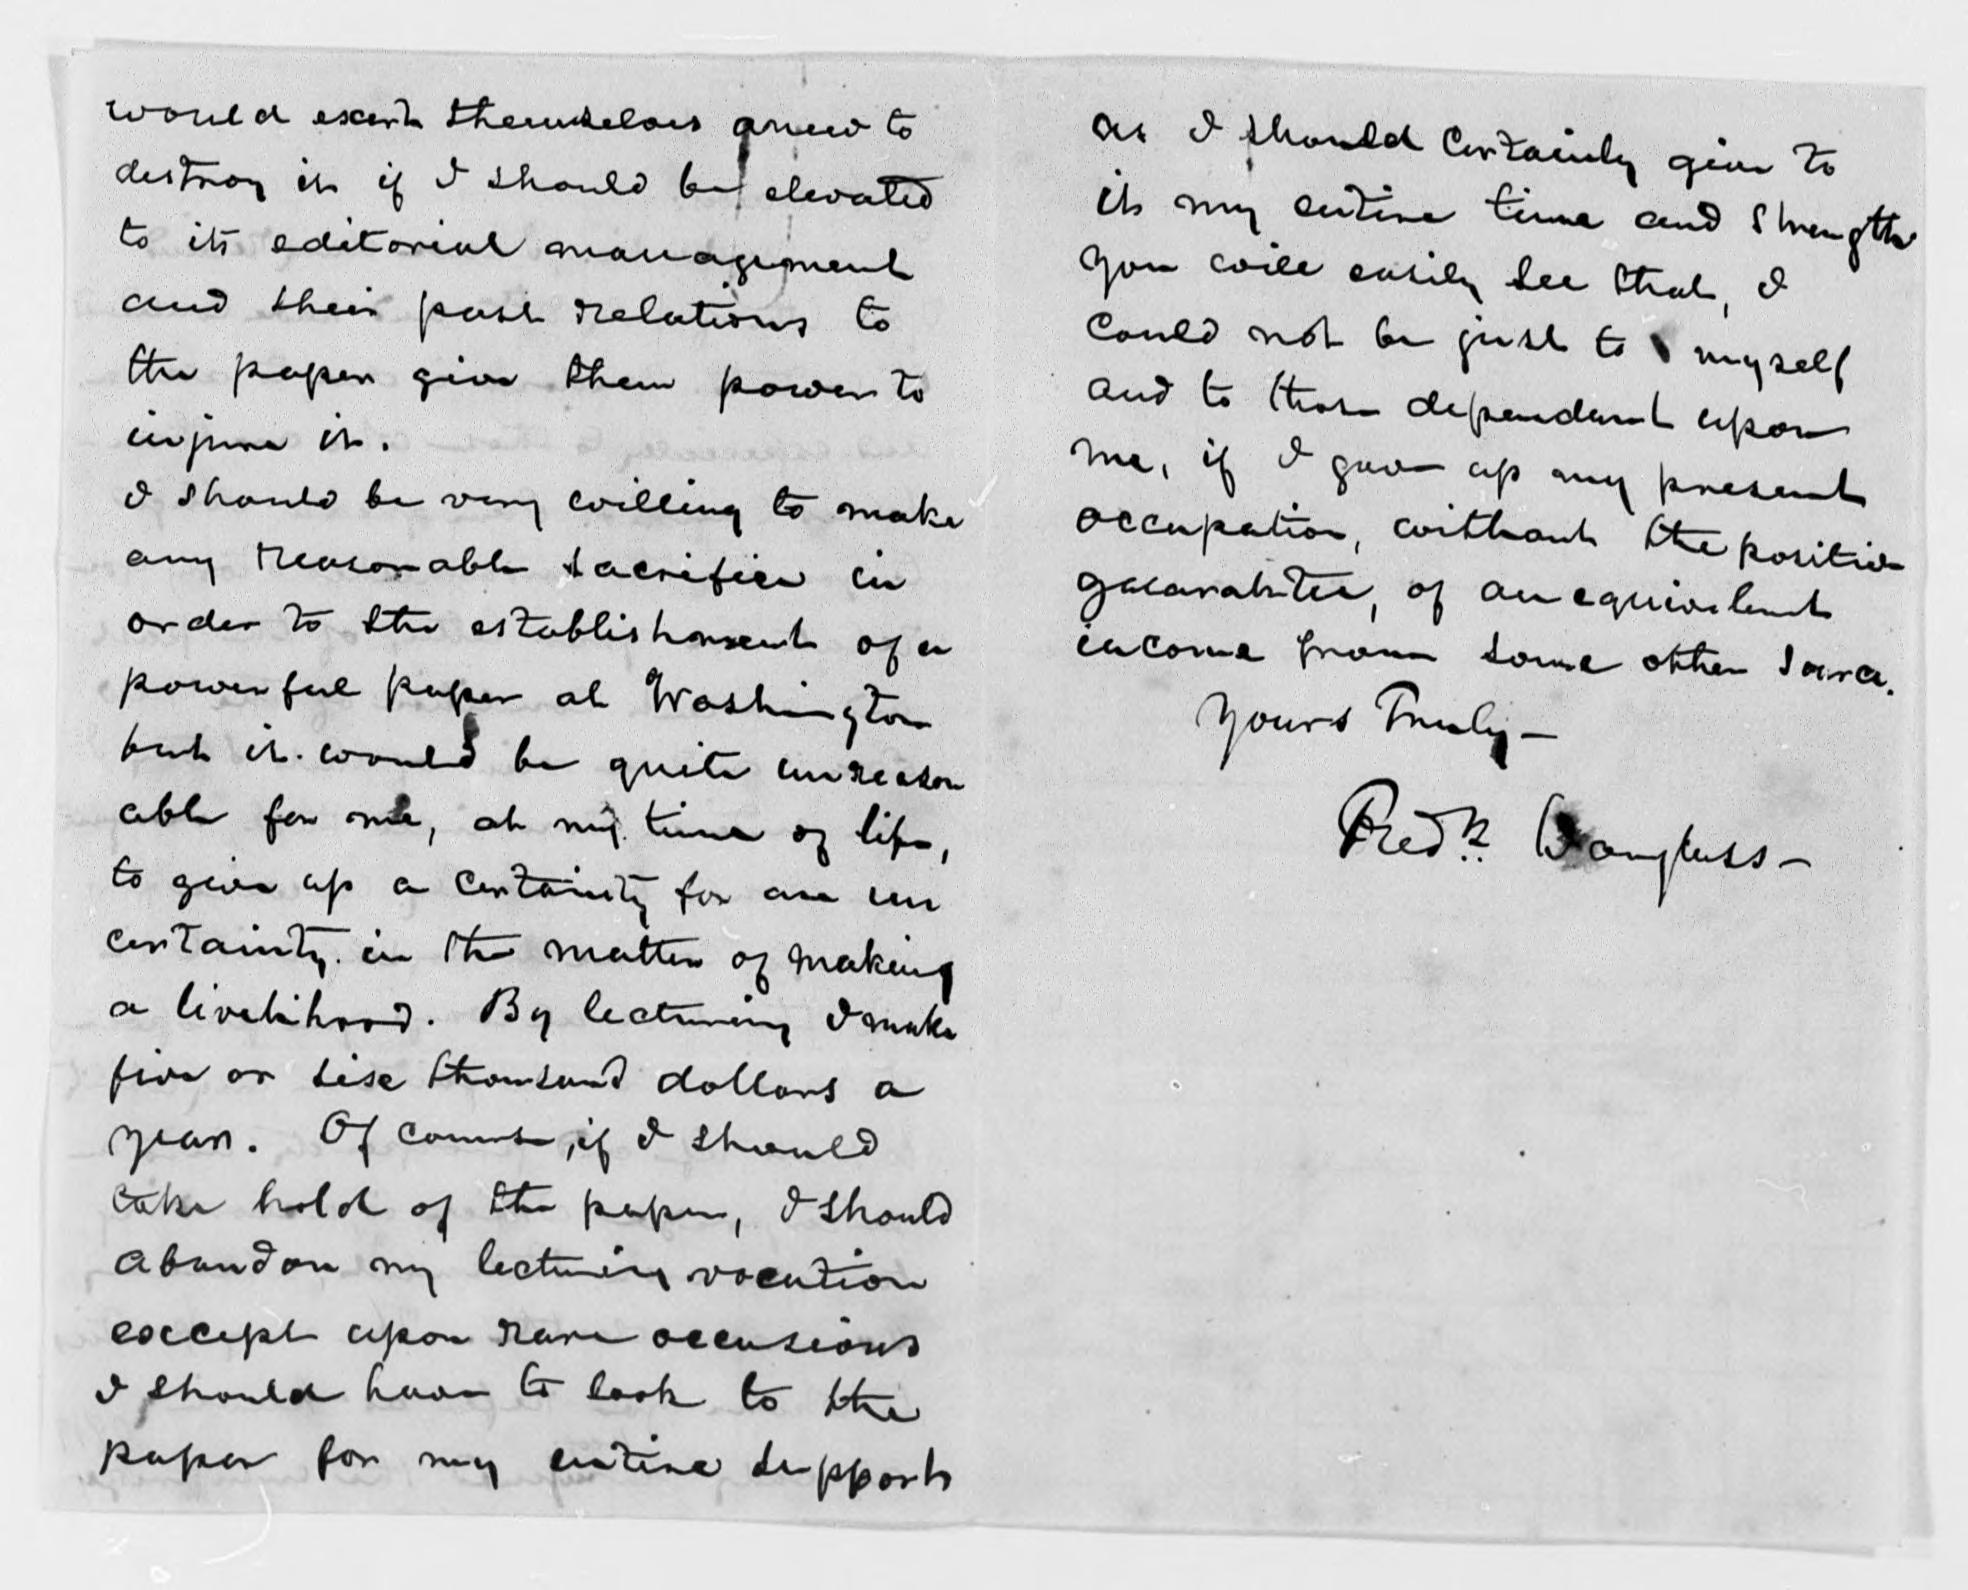 would exert themselves anew to
destroy it if I should be elevated
to its editorial management
and their past relations to
the paper give them power to
injure it.
I should be very willing to make
any reasonable sacrifice in
order to the establishment of a
powerful paper at Washington
but it would be quite unreason
able for me, at my time of life,
to give up a certainty for an un
certainty in the matter of making
a livelihood. By lecturing I make
five or six thousand dollars a
year. Of course, if I should
take hold of the paper, I should
abandon my lecturing vocation
except upon rare occasions
I should have to look to the
paper for my entire support
as I should certainly give to
it my entire time and strength
you will easily see that, I
could not be just to myself
and to those dependent upon
me, if I gave up my present
occupation, without the positive
guarantee, of an equivalent
income from some other source.
Yours Truly—
Fredk Douglass—